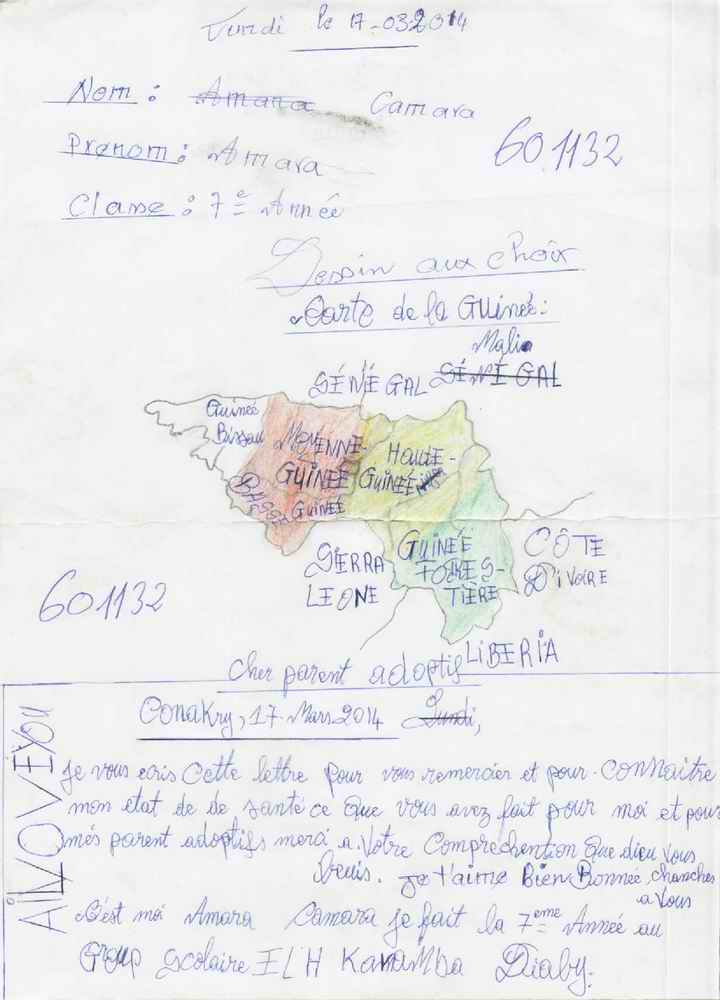 Lundi le 17-03-2014
Nom : Amara Camara
Prénom : Amara
601132
Classe : 7e Année
Dessin aux choix
Carte de la Guinée :
Malie
SÉNÉGAL SÉNÉGAL
Guinée
Bissau
MOYENNE-
GUINÉE
HAUTE-
GUINÉE
BASSE
GUINEE
GUINÉE
FORES-
TIÈRE
SIERRA
LEONE
CÔTE
D'IVOIRE
601132
LIBERIA
cher parent adoptifs
Conakry, 17 Mars 2014 Lundi,
AILOVEYOU
Je vous ecris Cette lettre pour vous remercier et pour connaitre
mon état de de santé ce que vous avez fait pour moi et pour
més parent adoptifs merci a Votre Comprehention que dieu vous
benis. Je t'aime Bien Bonneé chanches
a Vous
C'est moi Amara Camara je fait la 7eme Année au
Group scolaire ELH KaRamba Diaby.